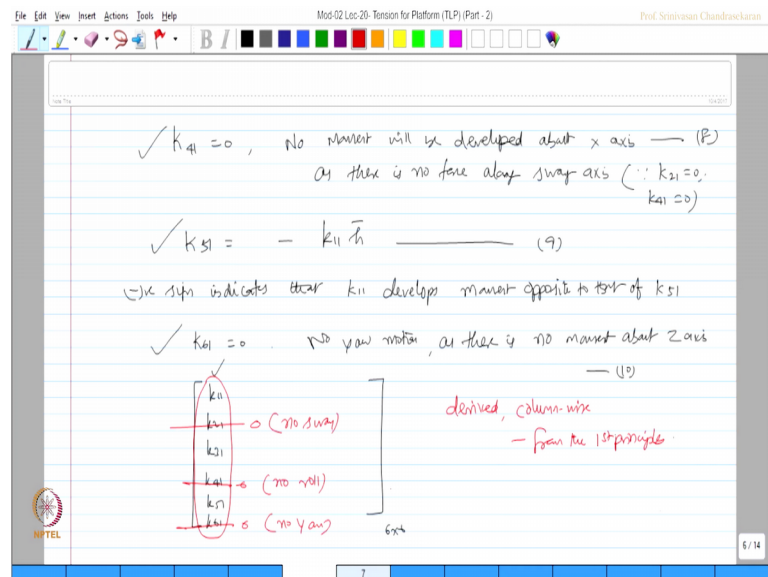 File Edit View Insert Actions Tools Help
Mod-02 Lec-20- Tension for Platform (TLP) (Part - 2)
Prof. Srinivasan Chandrasekaran
B I
Note Title
K41 = 0, No moment will be developed about x axis — (8)
as there is no force along sway axis (∵ k21 = 0,
k41 = 0)
K51 = - k11 h̄ — (9)
(-)ve sign indicates that k11 develops moment opposite to that of k51
k61 = 0. No yaw motion, as there is no moment about Z axis
— (10)
k11
k21 0 (no sway)
k31
k41 0 (no roll)
k51
k61 0 (no yaw)
6x6
derived, column-wise
- from the 1st principles.
NPTEL
6 / 14
7